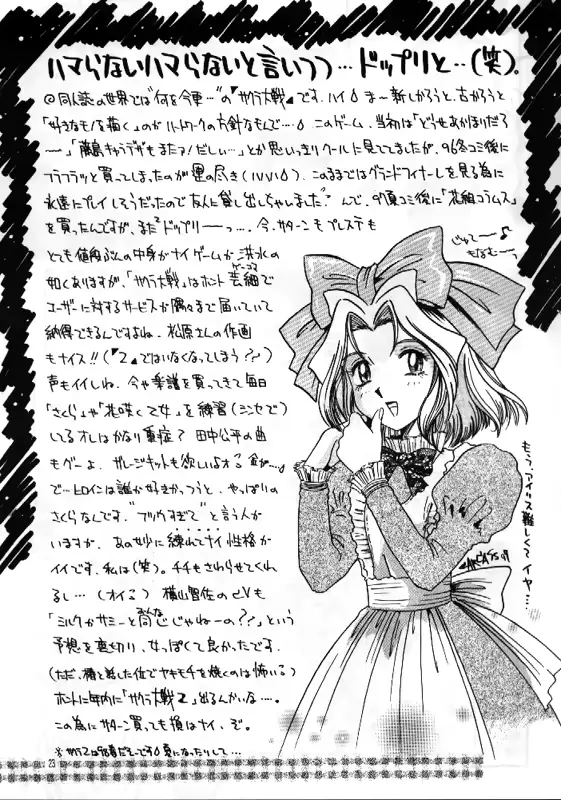 ハマらないハマらないと言いつつ…ドップリと‥(笑)。
◎同人誌の世界では“何を今更…”の『サクラ大戦』です。ハイ ま〜新しかろうと、古かろうと
「好きなモノを描く」のがハートワークの方針なもんで…。このゲーム、当初は「どうせあかほりだろ
〜」「藤島キャラデザもまたァ!だしぃ…」とか思いっきりクールに見てましたが、96冬コミ後に
フラフラッと買ってしまったのが運の尽き(いいい)。このままではグランドフィナーレを見る為に
永遠にプレイしそうだったので友人に貸し出しちゃいました。んで、97夏コミ後に『花組コラムス』
を買ったんですが、またドップリーーっ…。今、サターンもプレステも
とても値段ぶんの中身がナイゲームが洪水の
如くありますが、「サクラ大戦」はホント芸細で
ユーザーに対するサービスが隅々まで届いていて
納得できるんですよね。松原さんの作画
もナイス!!(『2』ではいなくなってしまう??)
声もイイしね。今や楽譜を買ってきて毎日
「さくら」や「花咲く乙女」を練習(シンセで)
してるオレはかなり重症? 田中公平の曲
もグーよ。ガレージキットも欲しいよォ〜る 金が…。
で…ヒロインは誰が好きかっつうと、やっぱりの
さくらなんです。“ブリッ子すぎて”と言う人が
いますが、あの妙に練れてナイ性格が
イイです。私は(笑)。チチもさわらせてくれ
るし…(オイこ) 横山智佐のCVも
「ミルクがサミーと同じじゃねーの??」という
予想を裏切り、女っぽくて良かったです。
(ただ、椿と話した位でヤキモチを焼くのは怖いる)
ホントに年内に「サクラ大戦2」出るんかいな…。
この為にサターン買っても損はナイ、ぞ。
じゃて〜♪
もなむ〜っ
もう、アイリス難しくてイヤ…。
23